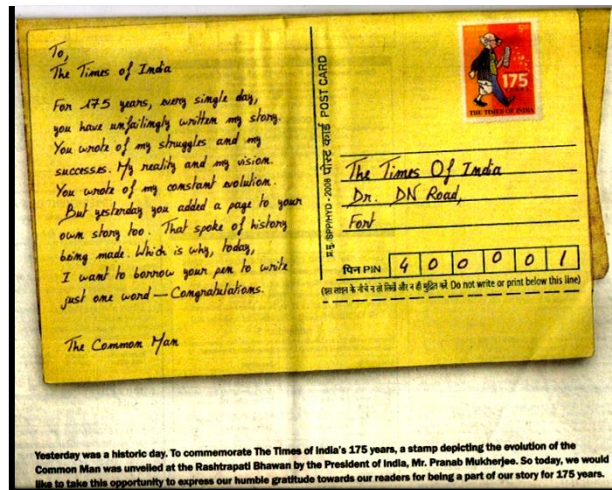 To,
The Times of India
For 175 years, every single day,
you have unfailingly written my story.
You wrote of my struggles and my
successes. My reality and my vision.
You wrote of my constant evolution.
But yesterday you added a page to your
own story too. That spoke of history
being made. Which is why, today,
I want to borrow your pen to write
just one word — Congratulations.
The Common Man
म.मु.-SPP/HYD-2008 पोस्ट कार्ड POST CARD
175
THE TIMES OF INDIA
The Times Of India
Dr. DN Road,
Fort
पिन PIN 4 0 0 0 0 1
(इस लाइन के नीचे न तो लिखें और न ही मुद्रित करें Do not write or print below this line)
Yesterday was a historic day. To commemorate The Times of India's 175 years, a stamp depicting the evolution of the
Common Man was unveiled at the Rashtrapati Bhawan by the President of India, Mr. Pranab Mukherjee. So today, we would
like to take this opportunity to express our humble gratitude towards our readers for being a part of our story for 175 years.